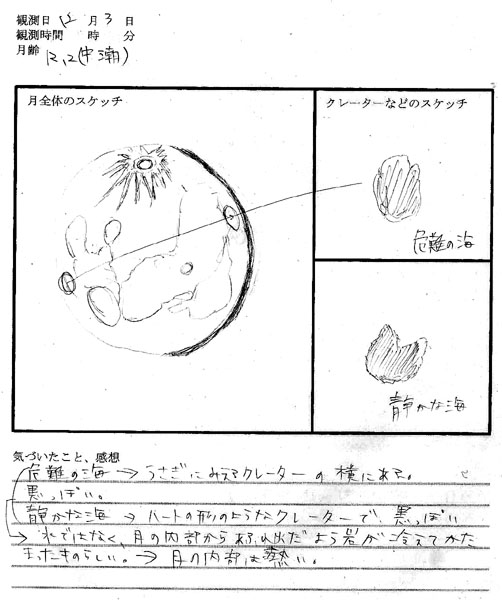 観測日 12月3日
観測時間 時 分
月齢 12.2(中潮)
月全体のスケッチ
クレーターなどのスケッチ
危難の海
静かな海
気づいたこと、感想
危難の海→うさぎにみえるクレーターの横にある。
黒っぽい。
静かな海→ハートの形のようなクレーターで、黒っぽい
→水ではなく、月の内部からあふれ出だよう岩が冷えてかた
まったものらしい。→月の内部は熱い。